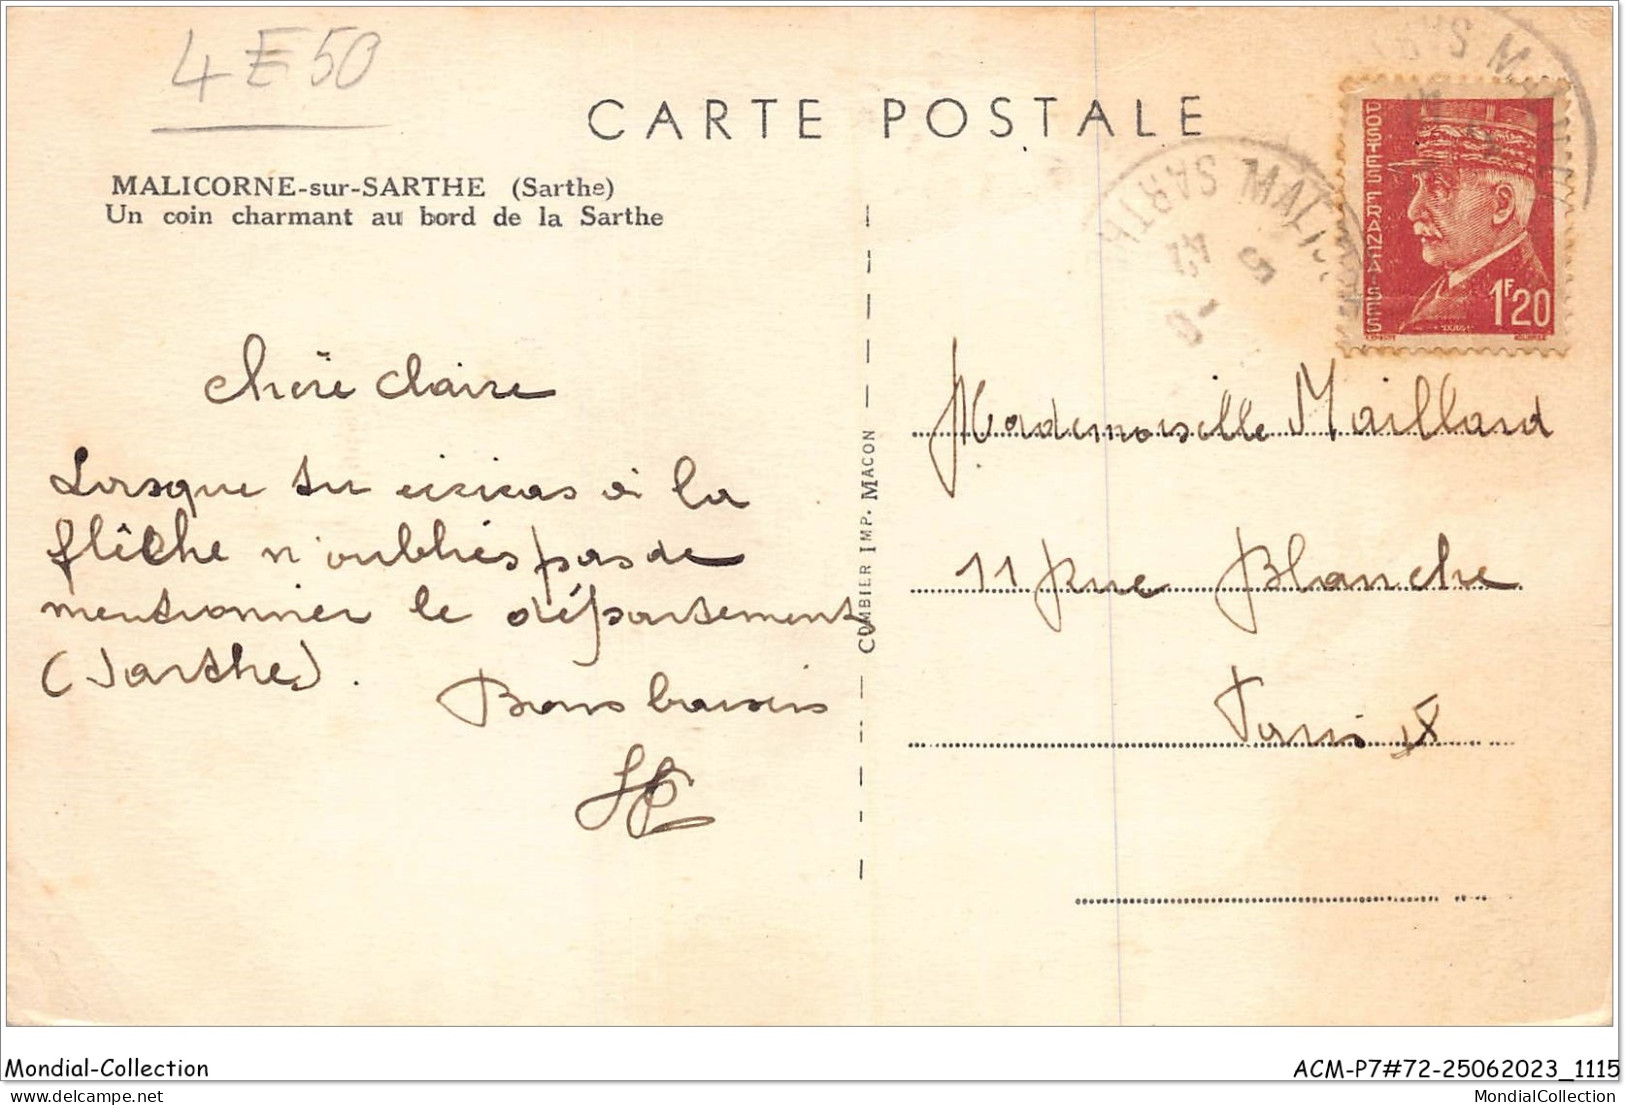 4E50
CARTE POSTALE
MALICORNE-sur-SARTHE (Sarthe)
Un coin charmant au bord de la Sarthe
POSTES FRANÇAISES
1F20
MALICORNE SARTHE
41
Chère Claire
Lorsque tu écriras à la
flêche n'oublies pas de
mentionner le département
(Sarthe).
Bons baisers
COMBIER IMP. MACON
Mademoiselle Maillard
11 rue Blanche
Paris IX
Mondial-Collection
ACM-P7#72-25062023_1115
mondial-collection
MondialCollection